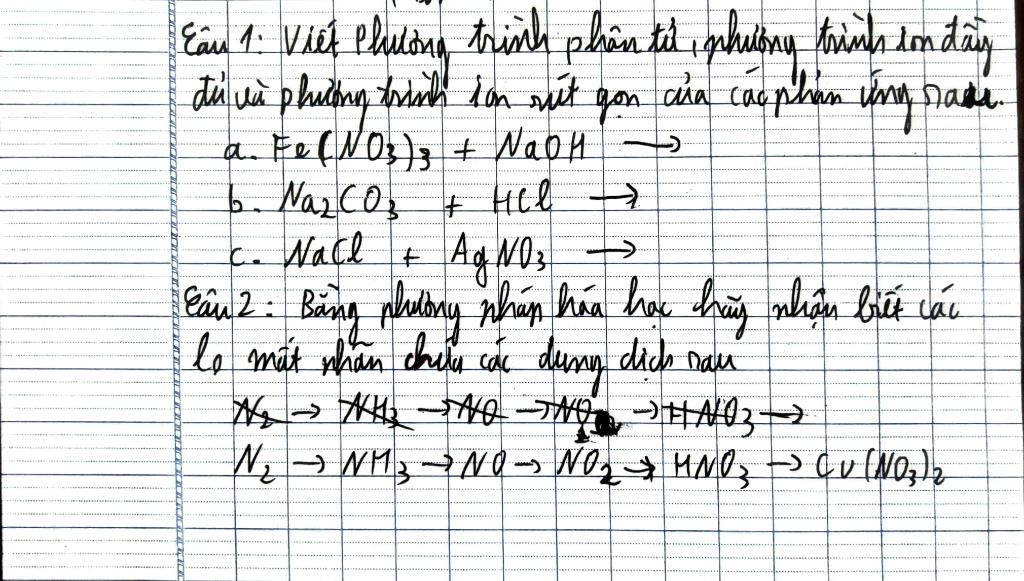 Câu 1: Viết Phương trình phân tử, phương trình ion đầy
đủ và phương trình ion rút gọn của các phản ứng sau.
a. Fe(NO3)3 + NaOH →
b. Na2CO3 + HCl →
c. NaCl + AgNO3 →
Câu 2: Bằng phương pháp hóa học hãy nhận biết các
lọ mất nhãn chứa các dung dịch sau
N2 → NH3 → NO → NO2 → HNO3 →
N2 → NH3 → NO → NO2 → HNO3 → Cu(NO3)2